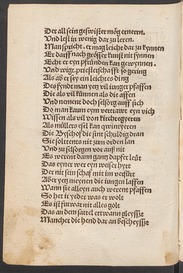 Der all sein geschwister mög enteren.
Und lest in wenig dar zu leren.
Man spricht er mag leicht dar zu kynnen
Er darff nach grösser kunst nit synnen
Echt er eyn pfründen kan gewynnen.
Und wigt priesterschafft so gering
Als ob es sey ein leichtes ding
Des fyndt man yetz vil iunger pfaffen
Die als vil künnen als die affen
Und nemen doch selsorg auff sich
Do man kaum eym vertruwt eyn vich
Wissen als vil von kirchregyeren
Als müllers esel kan quintyeren
Die Byschoff die sint schuldig dran
Sie soltents nit zum orden lan
Und zu selsorgen vor auß nit
Es werent dann gantz dapfer lüt
Das eyner wer eyn weiser hyrt
Der nit sein schaff mit im verfürt
Aber yetz wenen die iungen laffen
Wann sie alleyn auch werent pfaffen
So het ir yeder was er wolt
Es ist fürwar nit alles golt
Das an dem sattel ettwann gleysßt
Mancher die hend dar an bescheysßt